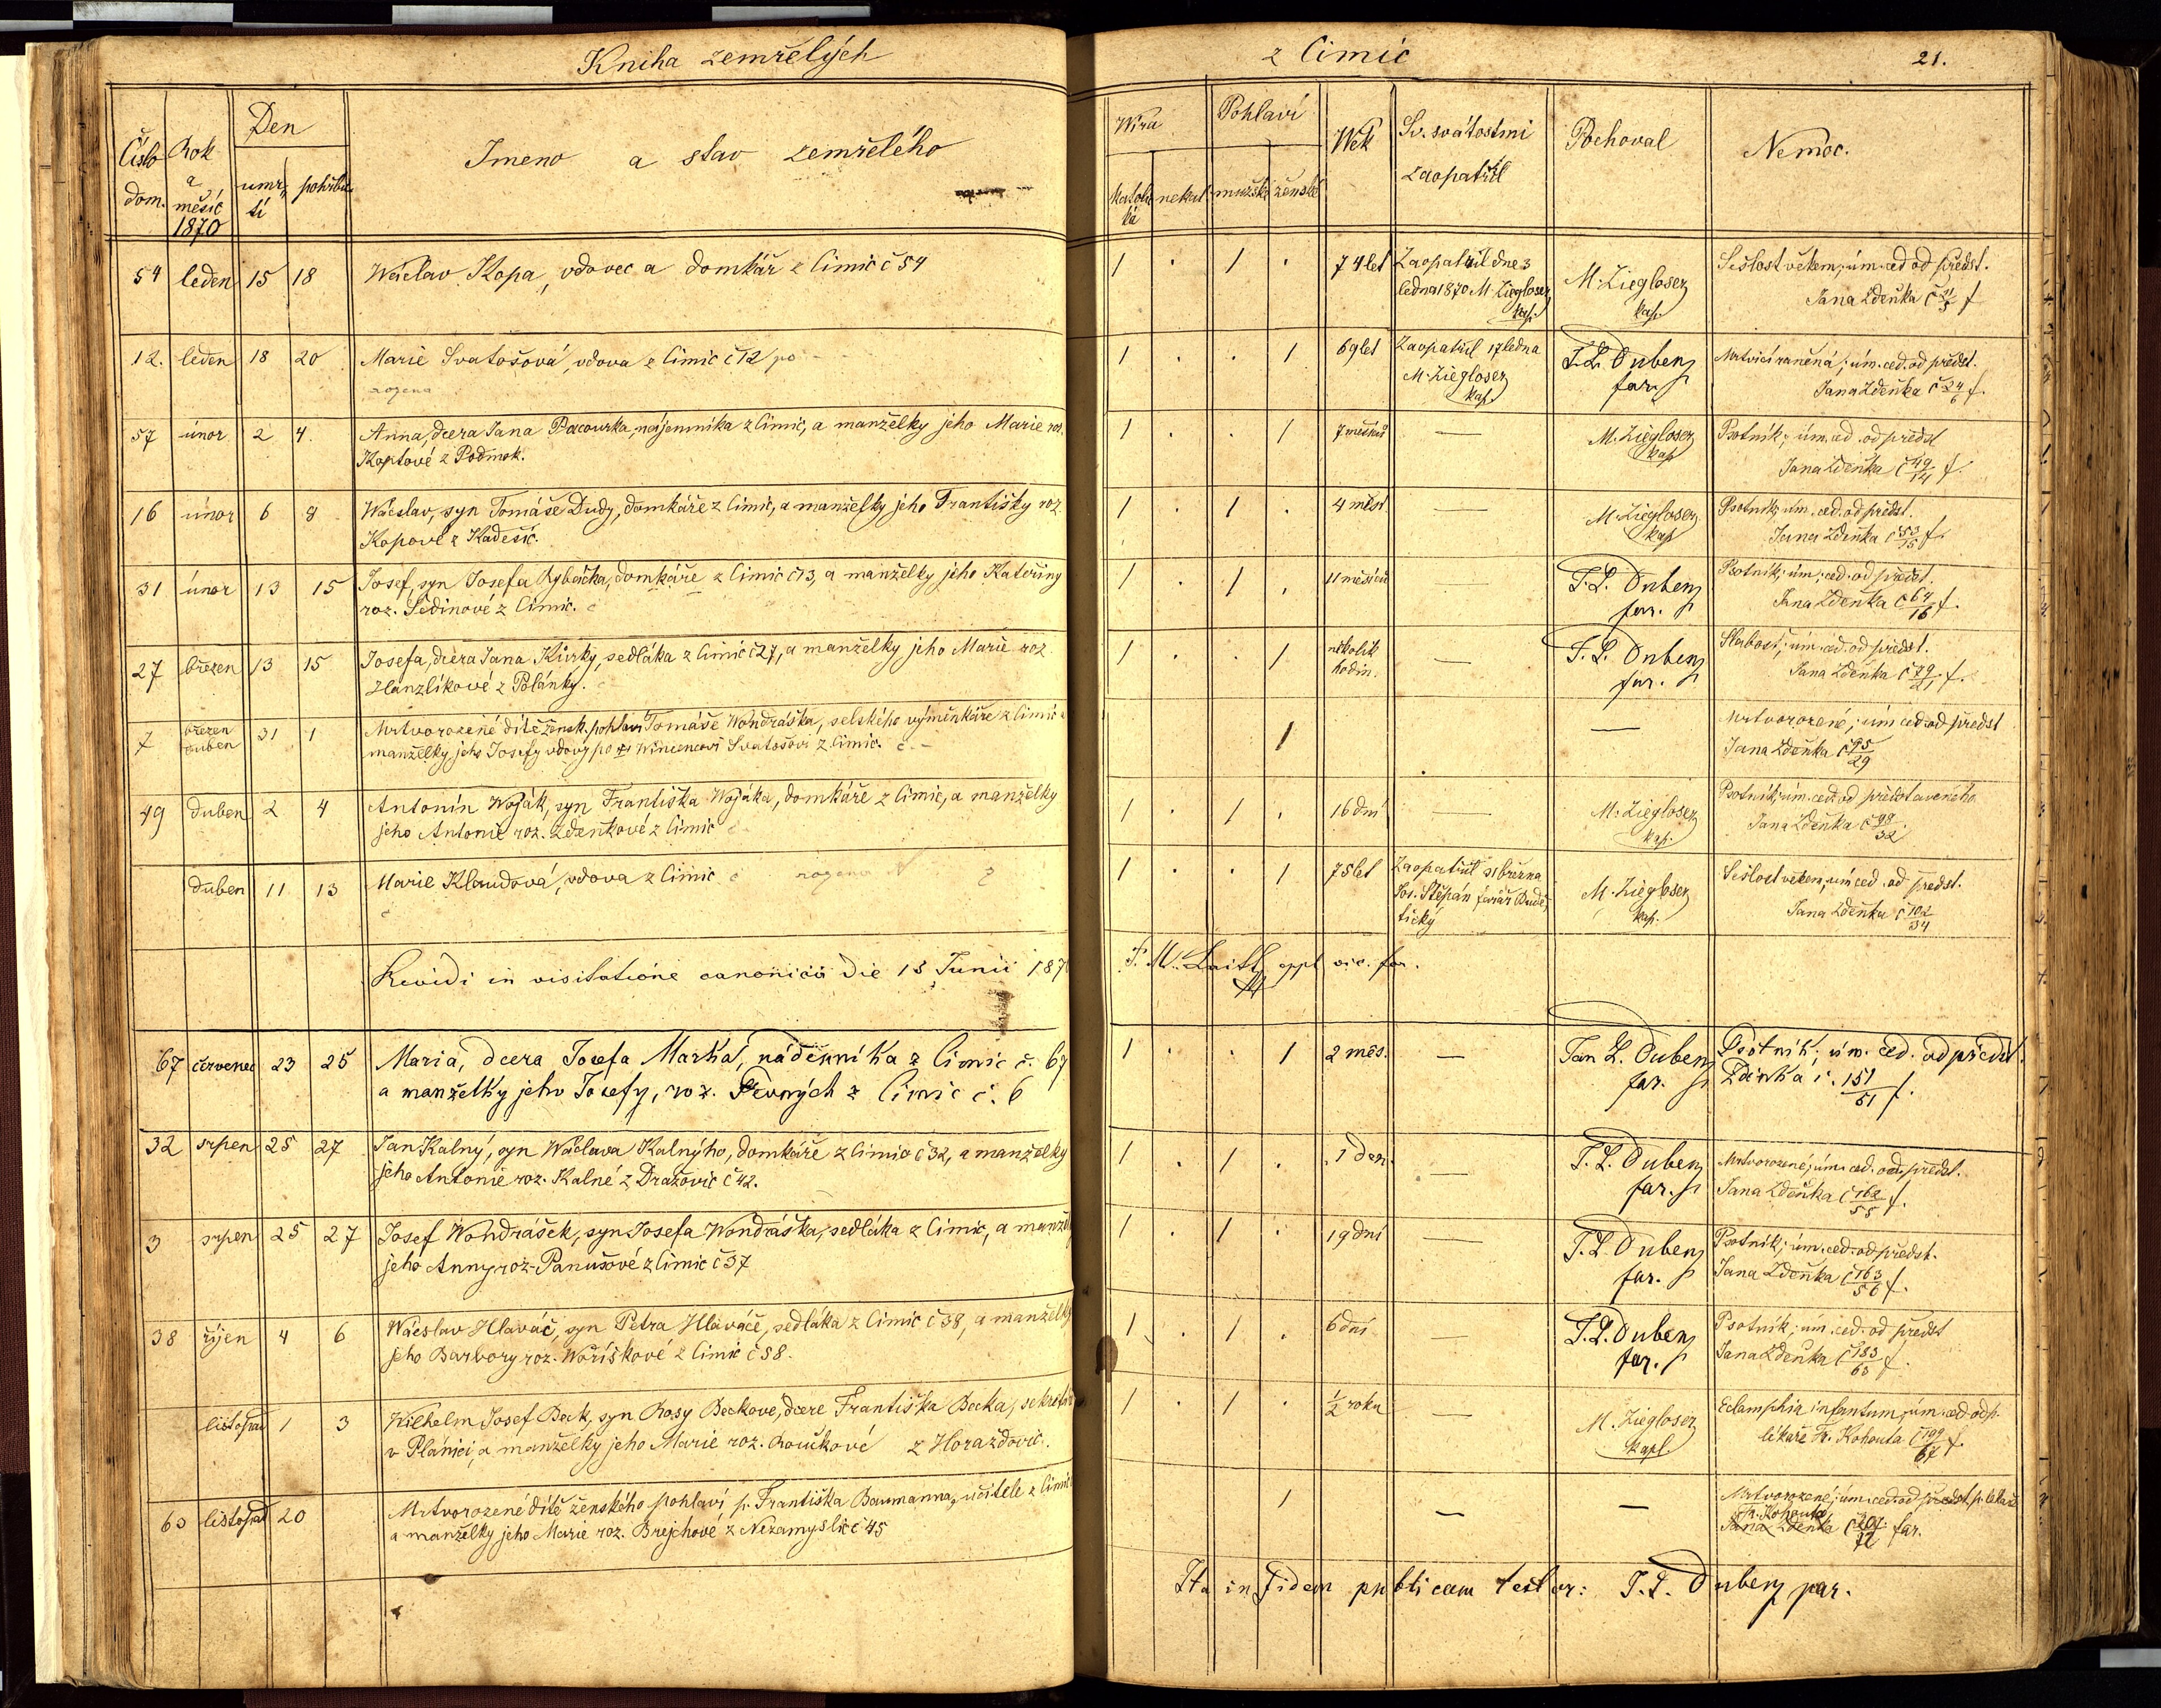 Kniha zemřelých
z Čimic
21.
Číslo dom.
Rok a měsíc 1870
Den
umrtí
pohřbu
Jmeno a stav zemřelého
Wíra
katolická
nekat.
Pohlaví
mužské
ženské
Wěk
Sv. svátostmi zaopatřil
Pochoval
Nemoc.
54 leden 15 18 Wáclav Kopa, vdovec a domkář z Čimic č 54
1 . 1 . 74 let Zaopatřil dne 3 M. Ziegloser Sešlost věkem; úm. ced od předst.
ledna 1870 M. Ziegloser kap. kap. Jana Zdeňka č f
12. leden 18 20 Marie Svatošová, vdova z Čimic č 12 po
rozena
1 . . 1 69 let Zaopatřil 17 ledna J. L. Duben Mrtvicí raněná; úm. ced. od předst.
M. Ziegloser kap. far. Jana Zdeňka č 24/6 f.
57 únor 2 4. Anna, dcera Jana Pacourka, nájemníka z Čimic, a manželky jeho Marie roz.
Koptové z Podmok.
1 . . 1 7 měsíců — M. Ziegloser kap Psotník; úm. ced. od předst
Jana Zdeňka č 49/14 f.
16 únor 6 8 Wácslav, syn Tomáše Dudy, domkáře z Čimic, a manželky jeho Františky roz.
Kopové z Kadešic.
1 . 1 . 4 měs. — M. Ziegloser kap Psotník; úm. ced. od předst.
Jana Zdeňka č 53/15 f.
31 únor 13 15 Josef, syn Josefa Rybáčka, domkáře z Čimic č 13, a manželky jeho Kateřiny
roz. Šedinové z Čimic.
1 . 1 . 11 měsíců — J. L. Duben far. Psotník; úm. ced. od předst.
Jana Zdeňka č 64/16 f.
27 březen 13 15 Josefa, dcera Jana Kůrky, sedláka z Čimic č 27, a manželky jeho Marie roz.
Hanzlíkové z Polánky.
1 . . 1 několik hodin. — J. L. Duben far. Slabost; úm. ced. od předst.
Jana Zdeňka č 79/21 f.
7 březen duben 31 1 Mrtvorozené dítě žensk. pohlaví Tomáše Wondráška, selského výměnkáře z Čimic a
manželky jeho Josefy vdovy po Wincencovi Svatošovi z Čimic.
1 — Mrtvorozené; úm ced. od předst
Jana Zdeňka č 95/29
49 duben 2 4 Antonín Woják, syn Františka Wojáka, domkáře z Čimic, a manželky
jeho Antonie roz. Zdeňkové z Čimic
1 . 1 . 16 dní — M. Ziegloser kap. Psotník; úm. ced. od představeného
Jana Zdeňka č 98/32
duben 11 13 Marie Klaudová, vdova z Čimic č rozena z
1 . . 1 75 let Zaopatřil 31 března M. Ziegloser kap. Sešlost věkem, úm ced. od předst.
Jos. Štěpán farář Budětický Jana Zdeňka č 102/34
Revidi in visitatione canonica die 13 Junii 1870
67 červenec 23 25 Maria, dcera Josefa Marka, nádenníka z Čimic č. 67
a manželky jeho Josefy, roz. Pevných z Čimic č. 6
1 . . 1 2 měs. — Jan L. Duben far. Psotník; úm. ced. od předst.
Zdeňka č. 151/51 f.
32 srpen 25 27 Jan Kalný, syn Wáclava Kalnýho, domkáře z Čimic č 32, a manželky
jeho Antonie roz. Kalné z Dražovic č 42.
1 . 1 . 1 den. — J. L. Duben far. Mrtvorozené; úm. ced. od předst.
Jana Zdeňka č 162/55 f.
3 srpen 25 27 Josef Wondrášek, syn Josefa Wondráška, sedláka z Čimic, a manžel
jeho Anny roz. Panušové z Čimic č 37
1 . 1 . 19 dní — J. L. Duben far. Psotník; úm. ced. od předst.
Jana Zdeňka č 163/56 f.
38 říjen 4 6 Wácslav Hlaváč, syn Petra Hlaváče, sedláka z Čimic č 38, a manželky
jeho Barbory roz. Woříškové z Čimic č 58.
1 . 1 . 6 dní — J. L. Duben far. Psotník; úm. ced. od předst
Jana Zdeňka č 183/63 f.
listopad 1 3 Wilhelm Josef Beck, syn Rosy Beckové, dcere Františka Becka, sekretáře
v Plánici, a manželky jeho Marie roz. Roučkové z Horažďovic.
1 . 1 . 1/2 roku — M. Ziegloser kapl. Eclamphia infantum, úm. ced. od p.
lékaře Fr. Kohouta č 199/67 f.
60 listopad 20 Mrtvorozené dítě ženského pohlaví p. Františka Baumanna, učitele z Čimic
a manželky jeho Marie roz. Brejchové z Nezamyslic č 45
1 — — Mrtvorozené; úm. ced. od předst. p. lékaře
Fr. Kohouta
Jana Zdeňka č 207/72 far.
Ita in fidem publicam testor: J. L. Duben par.